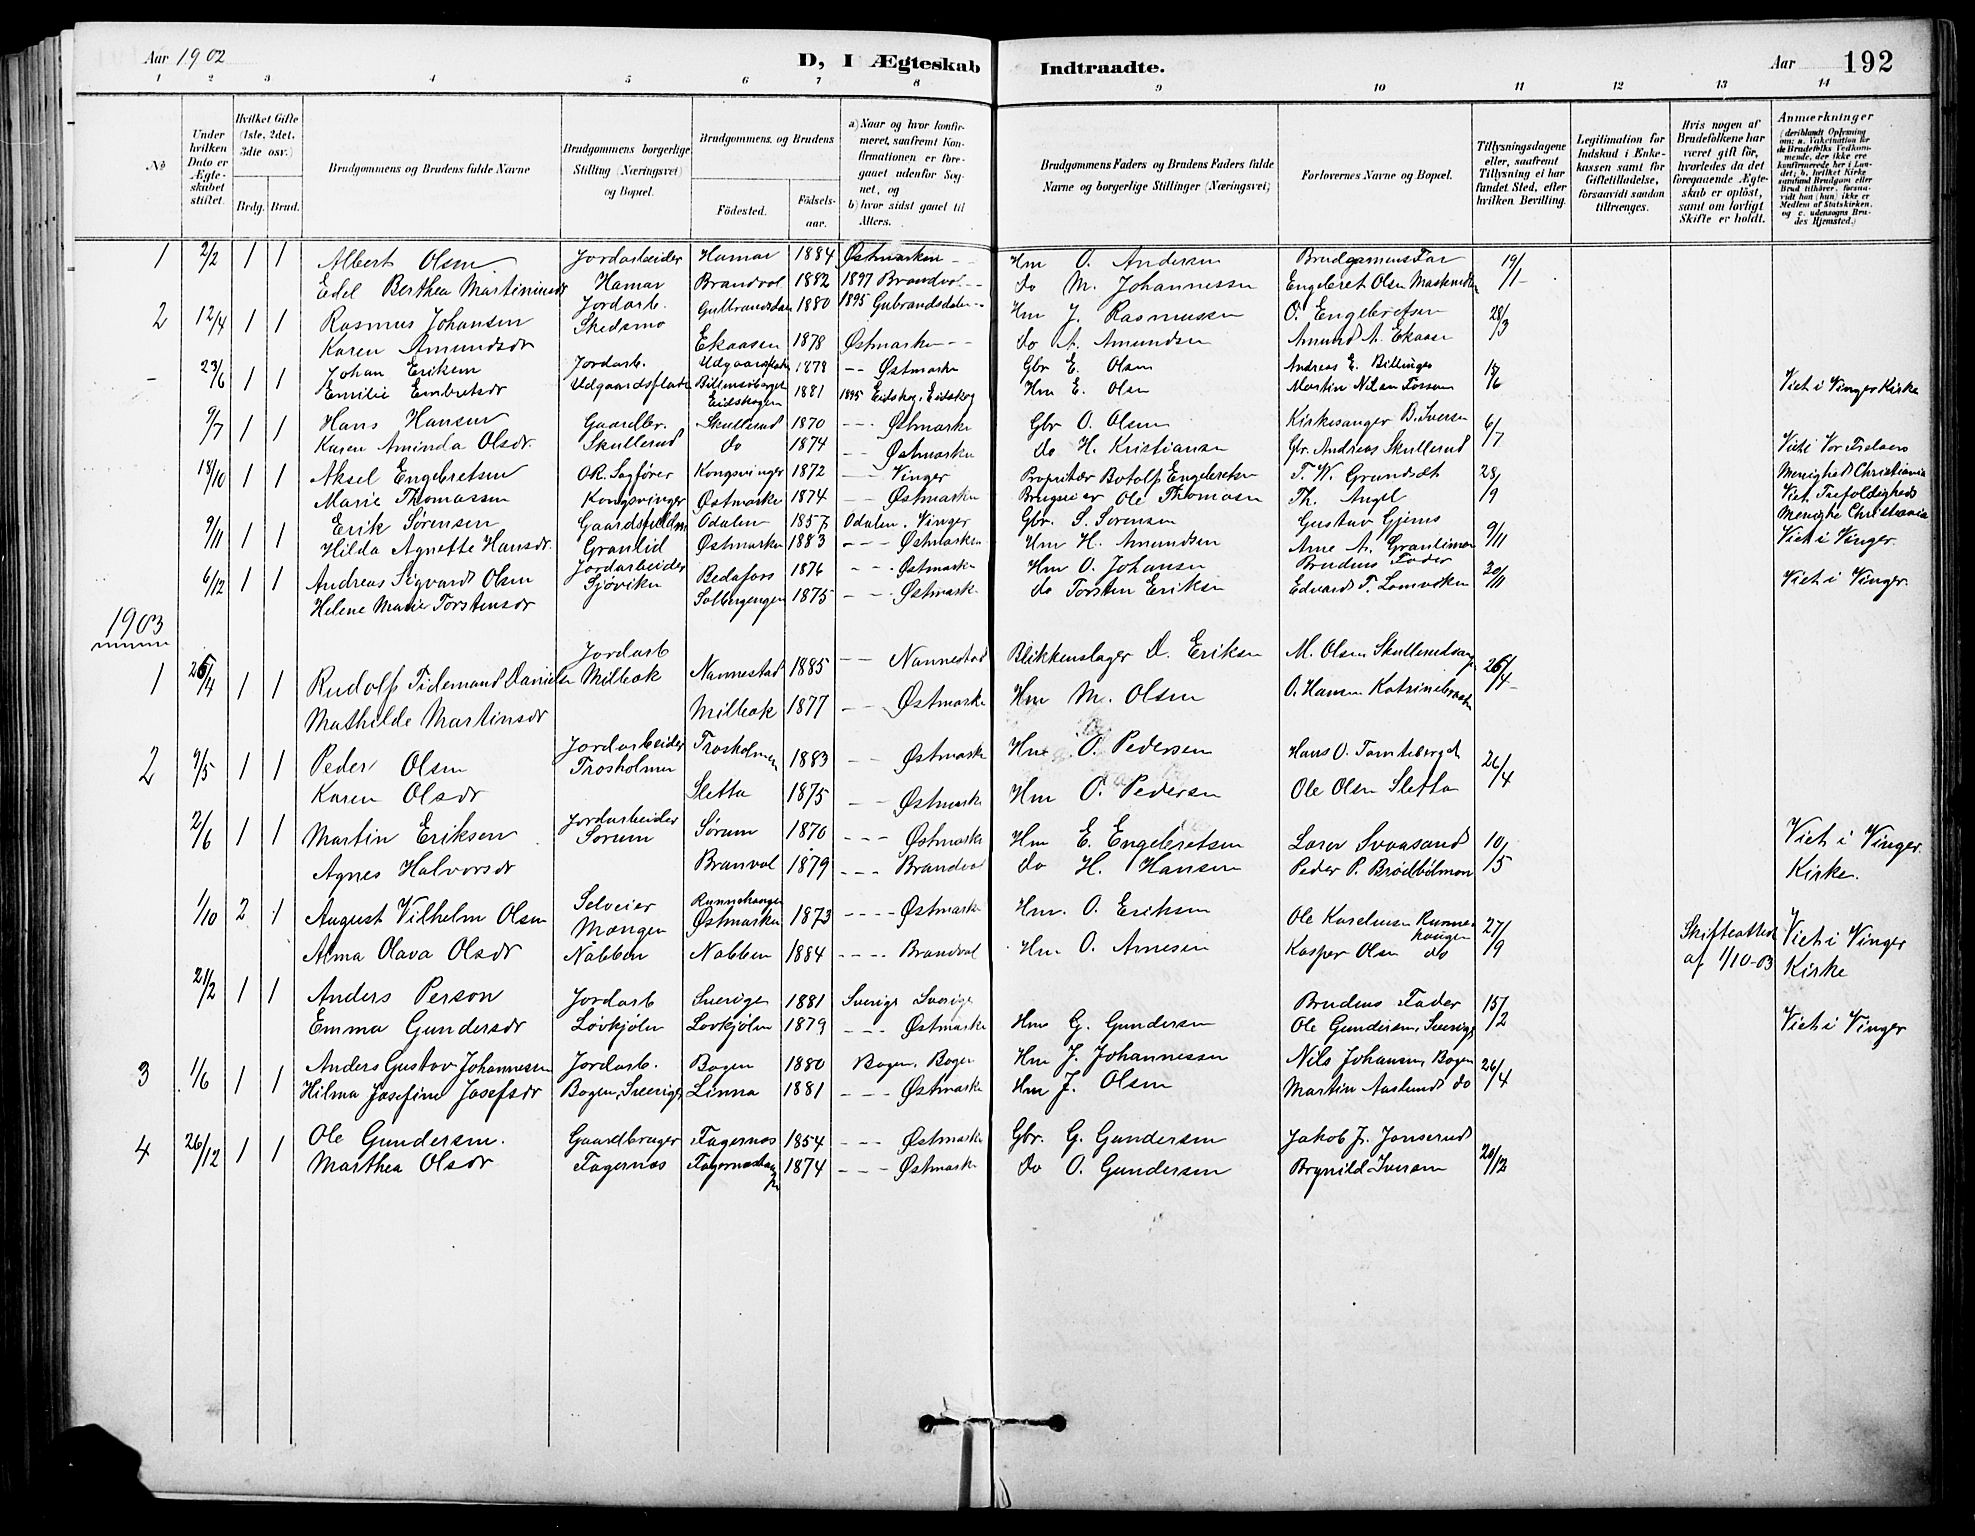 Aar 1902 D, I Ægteskab Indtraadte. Aar 192
1 2 3 4 5 6 7 8 9 10 11 12 13 14
No
Under hvilken Dato er Ægteskabet stiftet.
Hvilket Gifte (1ste, 2det, 3die osv.)
Brdg. Brud.
Brudgommens og Brudens fulde Navne
Brudgommens borgerlige Stilling (Næringsvei) og Bopæl.
Brudgommens og Brudens
Fødested. Fødselsaar.
a) Naar og hvor konfirmeret, saafremt Konfirmationen er foregaaet udenfor Sognet, og
b) hvor sidst gaaet til Alters.
Brudgommens Faders og Brudens Faders fulde Navne og borgerlige Stillinger (Næringsvei)
Forlovernes Navne og Bopæl.
Tillysningsdagene eller, saafremt Tillysning ei har fundet Sted, efter hvilken Bevilling.
Legitimation for Indskud i Enkekassen samt for Giftetilladelse, forsaavidt saadan tiltrænges.
Hvis nogen af Brudefolkene har været gift før, hvorledes da det foregaaende Ægteskab er opløst, samt om lovligt Skifte er holdt.
Anmærkninger
(deriblandt Oplysning om: a. Vakcination for de Brudefolks Vedkommende, der ikke ere konfirmerede her i Landet; b. hvilket Kirkesamfund Brudgom eller Brud tilhører, forsaavidt han (hun) ikke er Medlem af Statskirken, og c. udensogns Brudes Hjemsted.)
1 2/2 1 1 Albert Olsen Jordarbeider Hamar 1884 Østmarken Hm O. Andersen Brudgomens Far 19/1
Edel Berthea Martinusdr Hamar Brandvol 1882 1897 Brandvol do M. Johannessen Engebret Olsen
2 12/4 1 1 Rasmus Johansen Jordarb. Skedsmo Gulbrandsdalen 1880 1895 Gubrandsdalen Hm J. Rasmussen O. Engebretsen 28/3
Karen Amundsdr Ekaasen 1878 Østmarken do A. Amundsen Amund A. Ekaasen
- 23/6 1 1 Johan Eriksen Jordarb. Udgaardsplads 1879 Østmarke Gbr E. Olsen Andreas E. Billinges
Emilie Embretsdr Udgaardsplads Eidskogen 1881 1895 Eidskog, Eidskog Hm E. Olsen Martin Nilsen Fossum Viet i Vinger Kirke
9/7 1 1 Hans Hansen Gaardbr. Skullerud 1870 Østmarke Gbr O. Olsen Kirkesanger B. Iversen 6/7
Karen Aminda Olsdr. Skullerud do 1874 Østmarken do H. Kristiansen Gbr. Andreas Skullerud Viet i Vor Frelsers
18/10 1 1 Aksel Engebretsen O.R. Sagfører Kongsvinger 1872 Vinger Proprietær Botolf Engebretsen T. W. Grundset 28/9 Menighed Christiania
Marie Thomassen Kongsvinger Østmarke 1874 Østmarke Brugseier Ole Thomasen Th. Angel Viet. Trefoldigheds
9/11 1 1 Erik Sørensen Odalen 1857 Odalen. Vinger Gbr. S. Sørensen Gustav Gjems 9/11 Menighe Christiania
Hilda Agnette Hansdr. Granlid Østmarken 1883 Østmarken Hm H. Amundsen Arne A. Grantimoen Viet i Vinger.
6/12 1 1 Andreas Sigvard Olsen Jordarbeider Sjøviken Bedafors 1876 Østmarke Hm O. Johansen Brudens Fader 30/11
Helene Marie Torstensdr Solbergengen 1875 Østmarke do Torsten Eriksen Edvard T. Viet i Vinger.
1903
1 26/4 1 1 Rudolf Tidemand Danielsen Jordarb Milbak Nannestad 1885 Nannestad Blikkenslager D. Eriksen M. Olsen 26/4
Mathilde Martinsdr Milbak 1877 Østmarke Hm M. Olsen O. Hansen Katrinebraaten
2 9/5 1 1 Peder Olsen Jordarbeider Trosholmen Trosholmen 1883 Østmarke Hm O. Pedersen Hans O. Tomteberget 26/4
Karen Olsdr Sletta 1875 Østmarke Hm O. Pedersen Ole Olsen Sletta
2/6 1 1 Martin Eriksen Jordarbeider Sorum Sørum 1870 Østmarke Hm E. Engebretsen Svaasand 10/5 Viet i Vinger
Agnes Halvorsdr Branvol 1879 Brandvol do H. Hansen Peder P. Brødbølmon Kirke.
1/10 2 1 August Vilhelm Olsen Selveier Mangen Runnehaugen Østmarken 1873 Østmarke Hm. O. Eriksen Ole Karelsen Runnehaugen 27/9 Skifteattest Viet i Vinger
Alma Olava Olsdr Nabben Nabben 1884 Brandvol Hm O. Arnesen Kasper Olsen do af 1/10-03 Kirke
21/2 1 1 Anders Person Jordarb Sverige 1881 Sverige Sverige Brudens Fader 15/2
Emma Gundersdr Løvkjølen Lovkjølen 1879 Østmarke Hm G. Gundersen Ole Gundersen, Sverige Viet i Vinger
3 1/6 1 1 Anders Gustav Johannesen Jordarb. Bogen 1880 Bogen, Bogen Hm J. Johannessen Nils Johansen, Bogen 26/4
Hilma Josefine Josefsdr Bogen, Sverige, Linna 1881 Østmarke Hm J. Olsen Martin Aaslund do
4 26/12 1 1 Ole Gundersen. Gaardbruger Fagernes 1854 Østmarke Gbr. G. Gundersen Jakob J. Jonserud 26/12
Marthea Olsdr Fagernæs Fagernæshaugen 1874 Østmarke do O. Gundersen Brynild Iversen